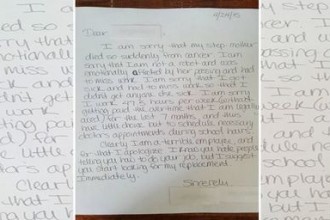 4/24/15
Dear
I am sorry that my step mother
died so suddenly from cancer. I am
sorry that I am not a robot and was
emotionally affected by her passing and had
to miss work. I am sorry that I got
sick and had to miss work so that I
didn't get anyone else sick. I am sorry
I work 47.5 hours per week (without
getting paid the overtime that I am legally
owed) for the last 7 months, and have
have little choice but to schedule necessary
doctors appointments during school hours.
Clearly I am a terrible employee, and
for that I apologize. I know you hate people
telling you how to do your job, but I suggest
you start looking for my replacement
immediately.
Sincerely,